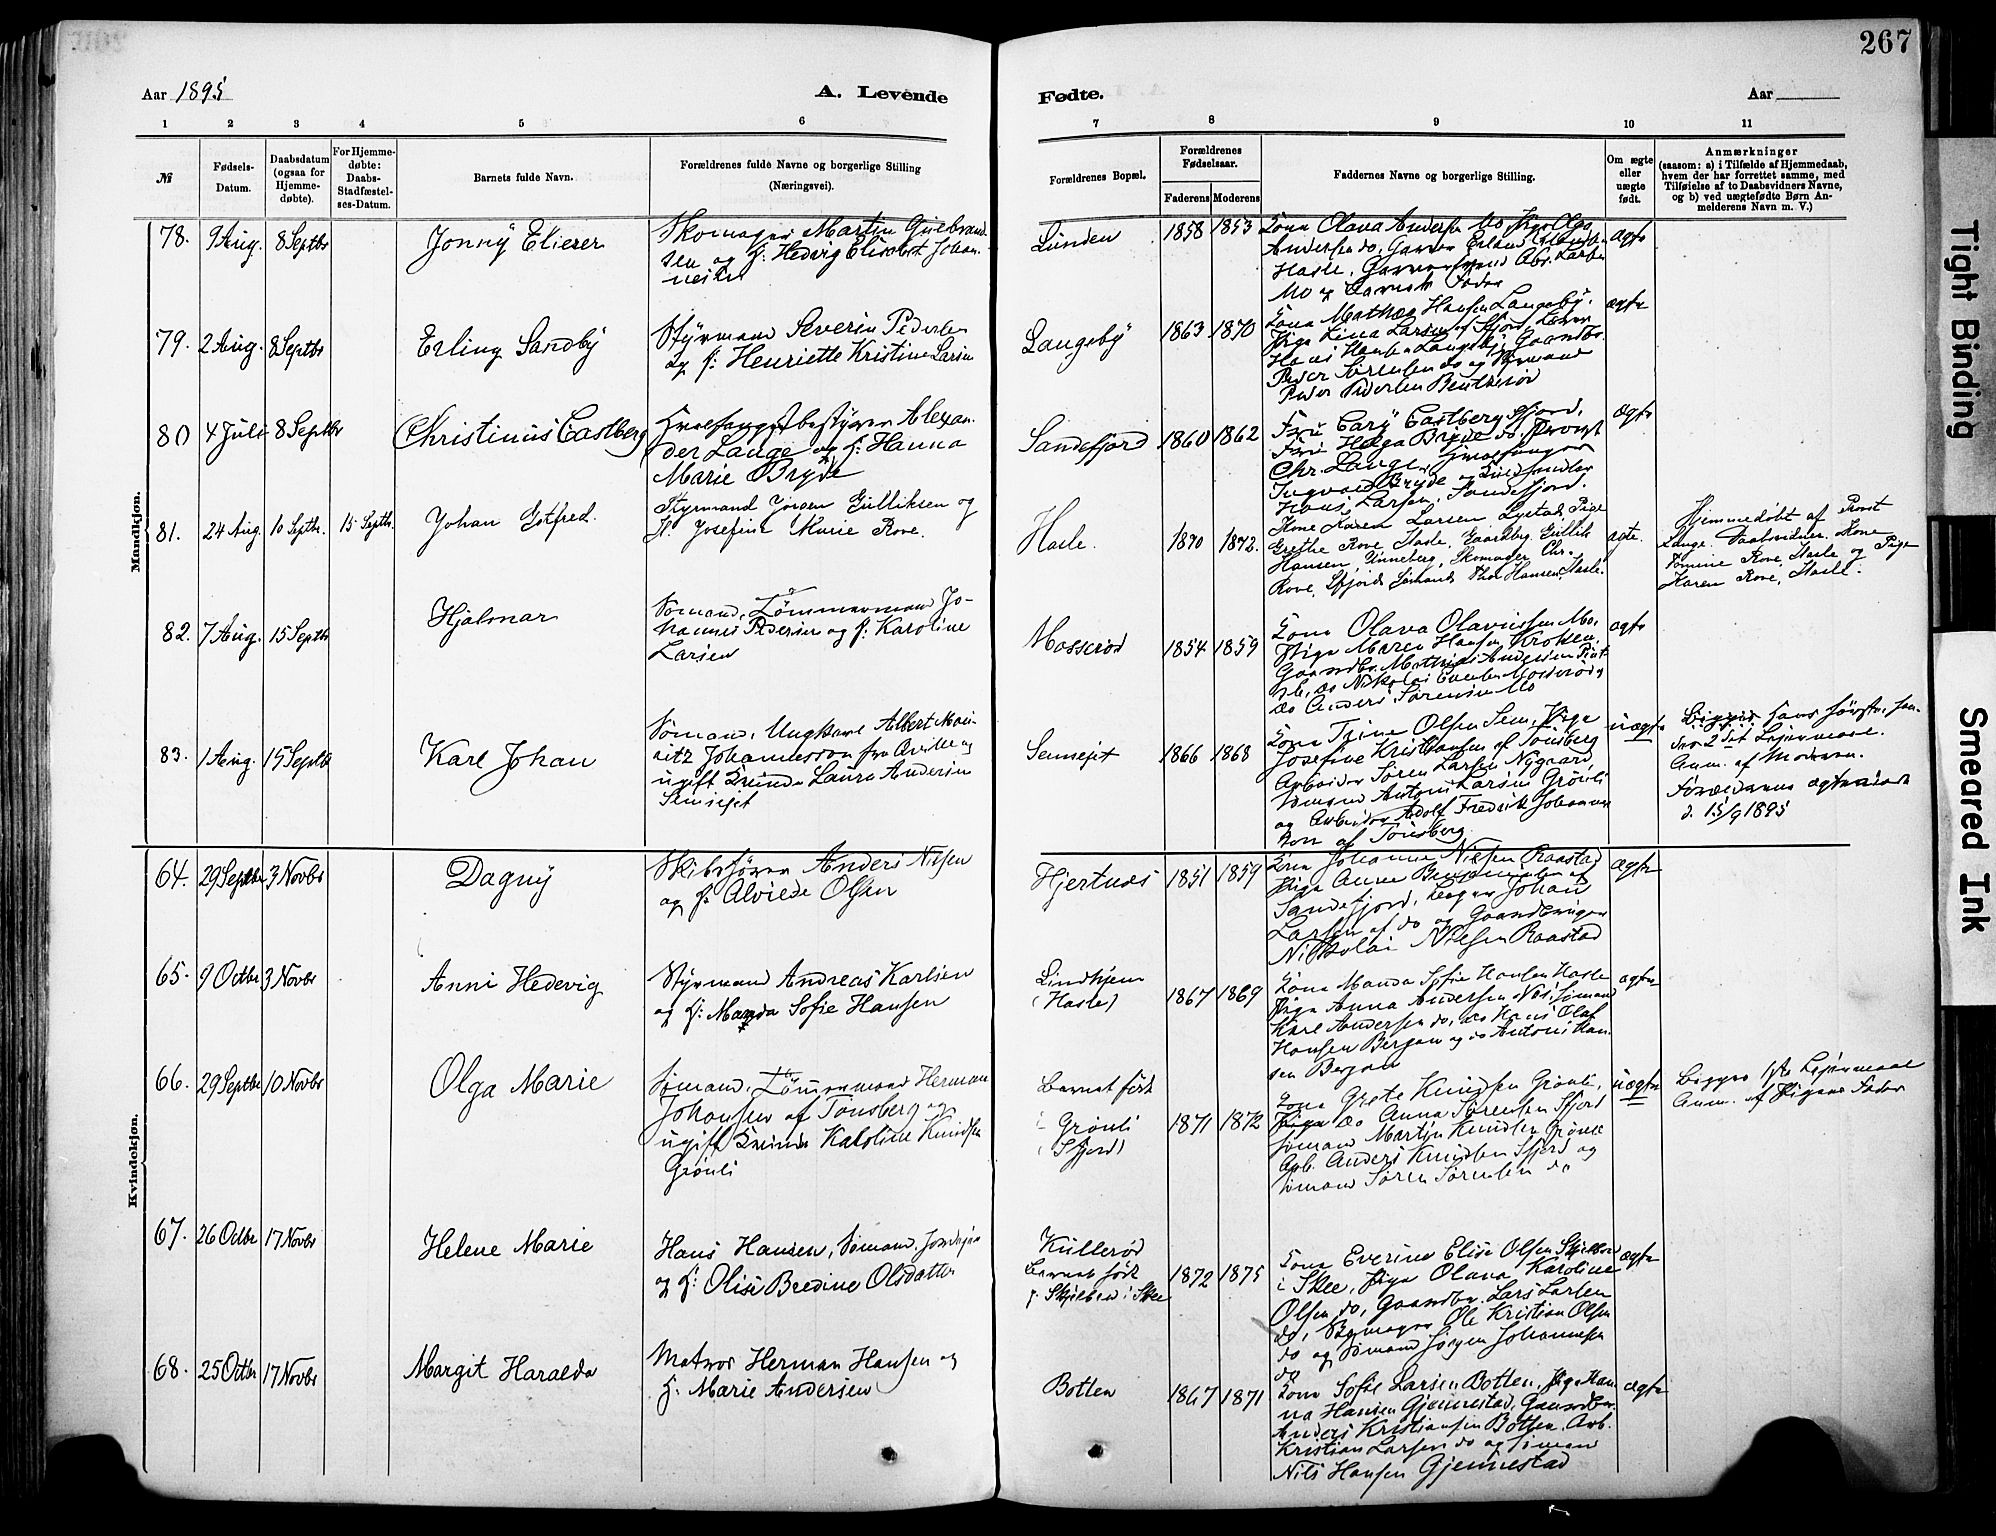 267
Aar 1895
A. Levende
Fødte.
Aar
1 2 3 4 5 6 7 8 9 10 11
№
Fødsels-
Datum.
Daabsdatum
(ogsaa for
Hjemme-
døbte).
For Hjemme-
døbte:
Daabs-
Stadfæstel-
ses-Datum.
Barnets fulde Navn.
Forældrenes fulde Navne og borgerlige Stilling
(Næringsvei).
Forældrenes Bopæl.
Forældrenes
Fødselsaar.
Faderens Moderens
Faddernes Navne og borgerlige Stilling.
Om ægte
eller
uægte
født.
Anmærkninger
(saasom: a) i Tilfælde af Hjemmedaab,
hvem der har forrettet samme, med
Tilføielse af to Daabsvidners Navne,
og b) ved uægtefødte Børn An-
melderens Navn m. V.)
Mandkjøn.
78. 9 Aug. 8 Septbr
Jonny Elierer
Skomager Martin Gulbrand-
sen og H: Hedvig Elisabet Johan-
nesen
Lunden
1858 1853
Kona Olava Andersen Mo, Pige Olga
Andersen do, Garver Erland
Hasle, Garversvend Abr. Larsen
Mo og Barnets Fader
ægte
79. 2 Aug. 8 Septbr
Erling Sandby
Styrmand Severin Pedersen
og H: Henriette Kristine Larsen
Langeby
1863 1870
Kona Mathea Hansen Langeby,
Pige Lina Larsen af Sfjord,
Hans Hansen Langeby, Gaardbr.
Peder Sørensen do og Styrmand
Peder Pedersen
ægte
80 4 Juli 8 Septbr
Christinus Castberg
Hvalfangstbestyrer Alexan-
der Lange og H: Hanna
Marie Bryde
Sandefjord
1860 1862
Fru Cary Castberg Sfjord,
Fru Helga Bryde do, Provst
Chr. Lange, Hvalfanger
Ingvald Bryde og
Hans Larsen, Sandefjord.
ægte
81. 24 Aug. 10 Septbr. 15 Septbr.
Johan Gotfred.
Styrmand Jørgen Gulliksen og
H. Josefine Marie Rove.
Hasle.
1870 1872.
Kone Karen Larsen Lystad, Pige
Grethe Rove Hasle, Gaardbrg. Gullik
Hansen, Unneberg, Skomager Chr.
Rove, Sfjord, Sømand Thor Hansen, Hasle.
ægte.
Hjemmedøbt af Provst
Lange. Daabsvidner: Kone
Tomine Rove, Hasle og Pige
Karen Rove, Hasle.
82. 7 Aug. 15 Septbr
Hjalmar
Sømand, Tømmermand Jo-
hannes Pedersen og H: Karoline
Larsen
Mosserød
1854 1859
Kona Olava Olaussen Mo,
Pige Maren Hansen Krokken,
Gaardbr. Mathias Andersen
do Nikolai Mosserød og
do Anders Sørensen Mo
ægte
83. 1 Aug. 15 Septbr
Karl Johan
Sømand, Ungkarl Albert Mau-
ritz Johannesson fra
ugift Kvinde Laura Andersen
Semsejet
Semsejet
1866 1868
Kona Trine Olsen Sem, Pige
Josefine Kristiansen af Tønsberg
Arbeider Søren Larsen Nygaard,
Sømand Anton Larsen Grønli
og Arbeider Adolf Fredrik Johannes-
son af Tønsberg
uægte
Begges hans første, hen-
des 2det Leiermaal.
Anm. af Moderen.
Forældrene ægteviede
d. 15/9 1895
Kvindekjøn.
64. 29 Septbr 3 Novbr
Dagny
Skibsfører Anders Nilsen
og H: Alvilde Olsen
Hjertnæs
1851 1859
Kona Johanne Nielsen Raastad
Pige Anna af
Sandefjord, Johan
Larsen af do og Gaardbruger
Nikolai Nielsen Raastad
ægte
65. 9 Octbr 3 Novbr
Anni Hedevig
Styrmand Andreas Karlsen
og H: Manda Sofie Hansen
Lindhjem
(Hasle)
1867 1869
Kona Manda Sofie Hansen Hasle
Pige Anna Andersen Næs, Sømand
Karl Andersen do, do Hans Olaf
Hansen Bergan og do Anton Han-
sen Bergan
ægte
66. 29 Septbr 10 Novbr
Olga Marie
Sømand, Tømmermand Herman
Johansen af Tønsberg og
ugift Kvinde Karoline Knudsen
Grønli
Barnet født
i Grønli
(Sfjord)
1871 1872
Kona Grete Knudsen Grønli,
Pige do Anna Sørensen Sfjord
Sømand Martin Knudsen Grønli
Arb. Anders Knudsen Sfjord og
Sømand Søren Sørensen do
uægte
Begges 1ste Leiermaal
Anm. af Pigens Fader
67. 26 Octbr 17 Novbr
Helene Marie
Hans Hansen, Sømand,
og H: Olise Bredine Olsdatter
Kullerød
Barnet født
p. Skjelbred i Skee
1872 1875
Kona Everine Elise Olsen
i Skee, Pige Olava Karoline
Olsen do, Gaardbr. Lars Larsen
do, Skomager Ole Kristian Olsen
do og Sømand Jørgen Johannesen
do
ægte
68. 25 Octbr 17 Novbr
Margit Haralda
Matros Herman Hansen og
H: Marie Andersen
Botten
1867 1871
Kona Sofie Larsen Botten, Pige Han-
na Hansen Gjennestad, Gaardbr.
Anders Kristiansen Botten, Arb.
Kristian Larsen do og Sømand
Nils Hansen Gjennestad
ægte
Tight Binding
Smeared Ink